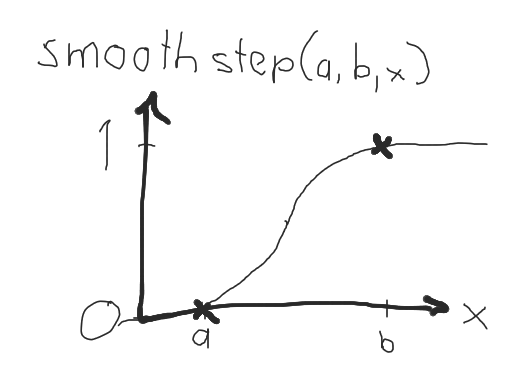 smoothstep(a, b, x)
1
0
a
b
x